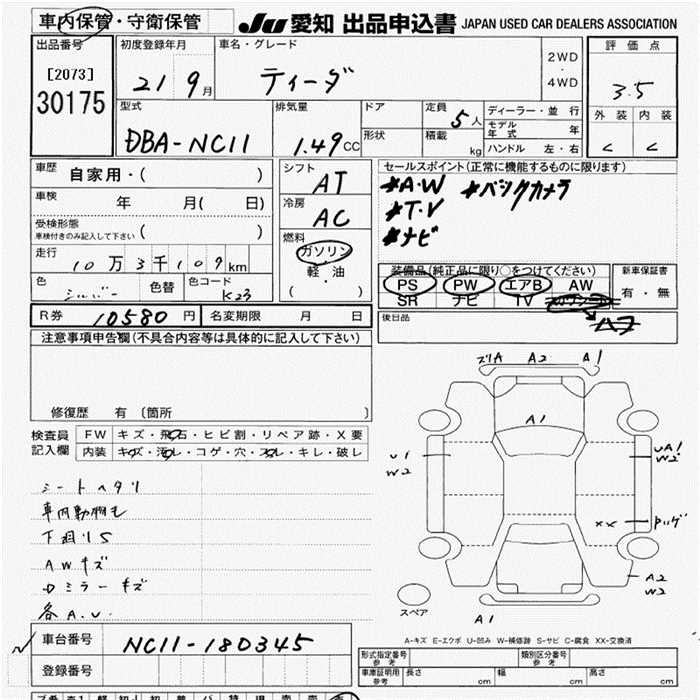 車内保管・守衛保管
JU 愛知 出品申込書 JAPAN USED CAR DEALERS ASSOCIATION
出品番号
[2073]
30175
初度登録年月
21 9月
車名・グレード
ティーダ
2WD
・
4WD
評価点
3.5
外装 内装
C C
型式
DBA-NC11
排気量
1.49CC
ドア
形状
定員
5人
積載
kg
ディーラー・並行
モデル年式 年
ハンドル 左・右
車歴
自家用・( )
車検
年 月( 日)
受検形態
車検付きのみ記入して下さい ( )
走行
10万3千109km
色
シルバー
色替
色コード
K23
シフト
AT
冷房
AC
燃料
ガソリン
軽・油
( )
セールスポイント(正常に機能するものに限ります)
*A・W *バックカメラ
*T・V
*ナビ
装備品(純正品に限り○をつけてください)
PS PW エアB AW
SR ナビ TV
新車保証書
有・無
後日品
R券 10580円
名変期限 月 日
注意事項申告欄(不具合内容等は具体的に記入して下さい)
修復歴 有 〔箇所 〕
検査員記入欄
FW キズ・飛石・ヒビ割・リペア跡・X要
内装 キズ・汚れ・コゲ・穴・スレ・キレ・破レ
シートヘタリ
車内動物毛
下廻りS
AWキズ
Dミラーキズ
各A.U.
ズリA A2 A1
A1
U1
W2
UA1
W2
XX
A2
W2
A1
スペア
A-キズ E-エクボ U-凹み W-補修跡 S-サビ C-腐食 XX-交換済
車台番号
NC11-180345
登録番号
形式指定番号
参考
類別区分番号
参考
車庫証明用
参考
長さ cm 幅 cm 高さ cm